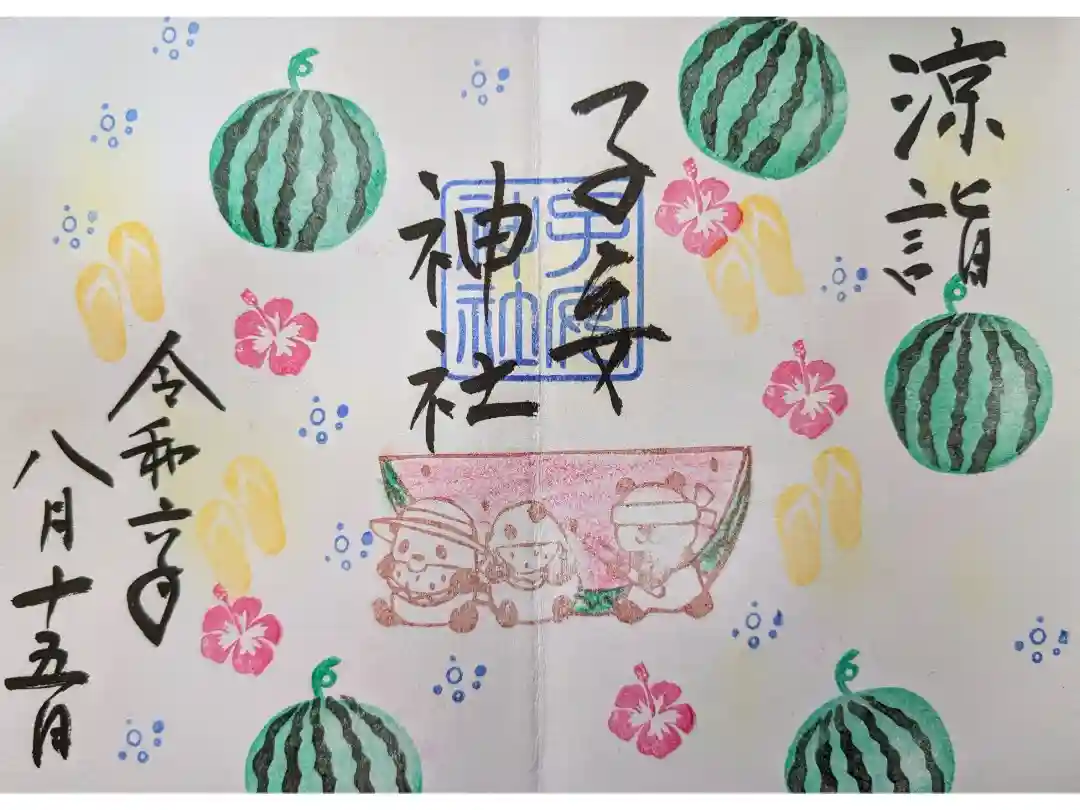 涼詣
子安
神社
子安
神社
令和六年
八月十五日